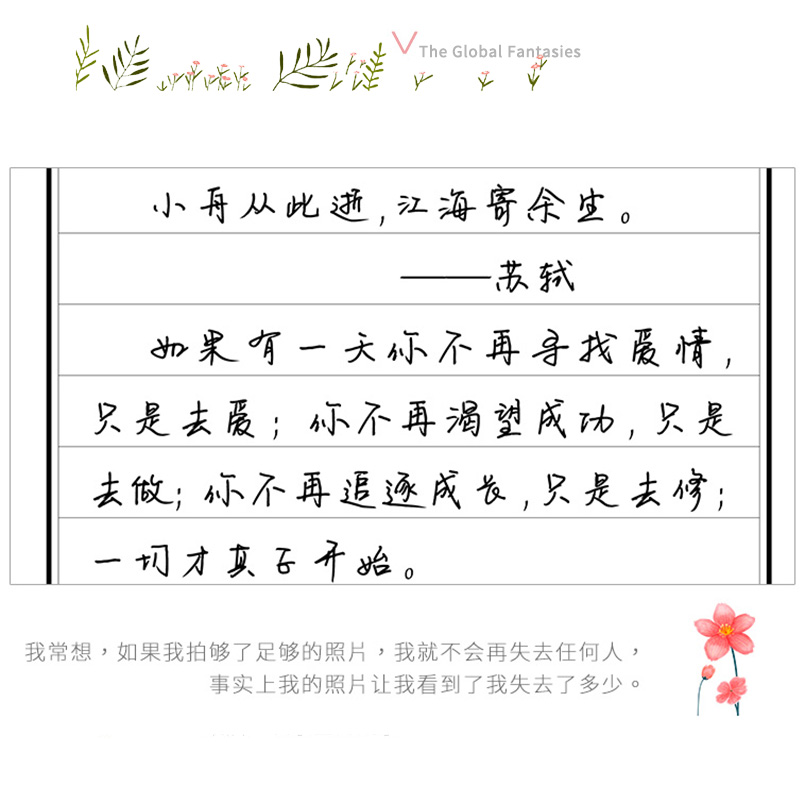 The Global Fantasies
小舟从此逝,江海寄余生。
——苏轼
如果有一天你不再寻找爱情,
只是去爱;你不再渴望成功,只是
去做;你不再追逐成长,只是去修;
一切才真正开始。
我常想,如果我拍够了足够的照片,我就不会再失去任何人,
事实上我的照片让我看到了我失去了多少。